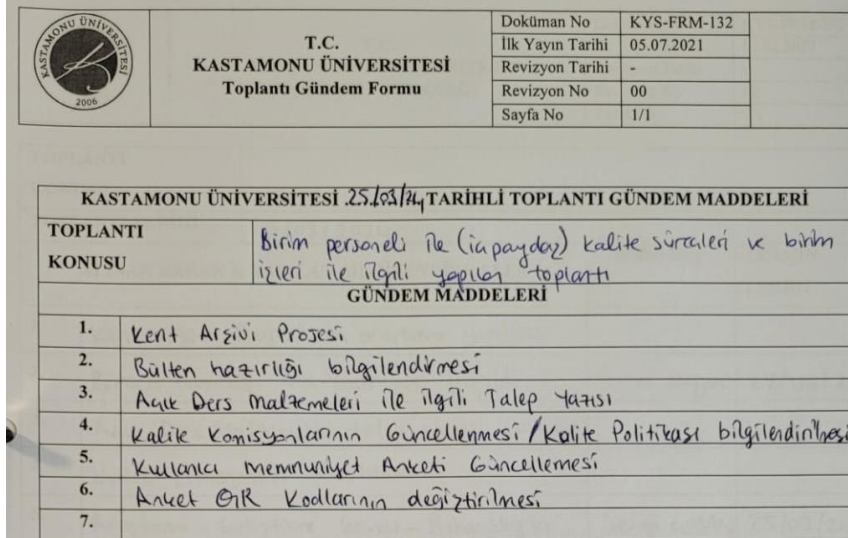 KASTAMONU ÜNİVERSİTESİ
2006
T.C.
KASTAMONU ÜNİVERSİTESİ
Toplantı Gündem Formu
Doküman No KYS-FRM-132
İlk Yayın Tarihi 05.07.2021
Revizyon Tarihi -
Revizyon No 00
Sayfa No 1/1
KASTAMONU ÜNİVERSİTESİ 25/03/24 TARİHLİ TOPLANTI GÜNDEM MADDELERİ
TOPLANTI KONUSU
Birim personeli ile (iç paydaş) kalite süreçleri ve birim
işleri ile ilgili yapılan toplantı
GÜNDEM MADDELERİ
1. Kent Arşivi Projesi
2. Bülten hazırlığı bilgilendirmesi
3. Açık Ders Malzemeleri ile ilgili Talep Yazısı
4. Kalite Komisyonlarının Güncellenmesi / Kalite Politikası bilgilendirilmesi
5. Kullanıcı Memnuniyet Anketi Güncellemesi
6. Anket QR Kodlarının değiştirilmesi
7.